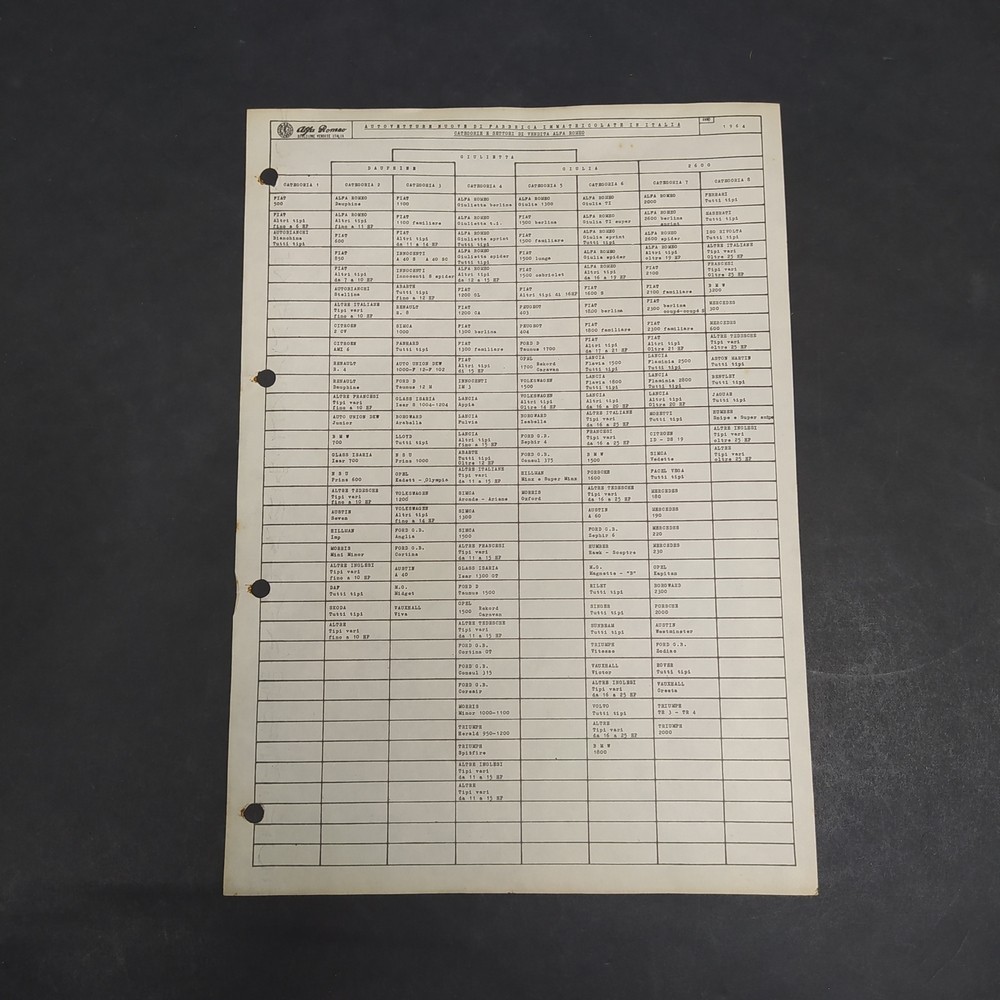 Alfa Romeo
DIREZIONE VENDITE ITALIA
AUTOVETTURE NUOVE DI FABBRICA IMMATRICOLATE IN ITALIA
CATEGORIE E SETTORI DI VENDITA ALFA ROMEO
1964
GIULIETTA
DAUPHINE
GIULIA
2600
CATEGORIA 1
CATEGORIA 2
CATEGORIA 3
CATEGORIA 4
CATEGORIA 5
CATEGORIA 6
CATEGORIA 7
CATEGORIA 8
FIAT
500
FIAT
Altri tipi
fino a 6 HP
AUTOBIANCHI
Bianchina
Tutti tipi
ALFA ROMEO
Dauphine
ALFA ROMEO
Altri tipi
fino a 11 HP
FIAT
600
FIAT
850
FIAT
Altri tipi
da 7 a 10 HP
AUTOBIANCHI
Stellina
ALTRE ITALIANE
Tipi vari
fino a 10 HP
CITROEN
2 CV
CITROEN
AMI 6
RENAULT
R. 4
RENAULT
Dauphine
ALTRE FRANCESI
Tipi vari
fino a 10 HP
AUTO UNION DKW
Junior
B M W
700
GLASS ISARIA
Isar 700
N S U
Prinz 600
ALTRE TEDESCHE
Tipi vari
fino a 10 HP
AUSTIN
Seven
HILLMAN
Imp
MORRIS
Mini Minor
ALTRE INGLESI
Tipi vari
fino a 10 HP
DAF
Tutti tipi
SKODA
Tutti tipi
ALTRE
Tipi vari
fino a 10 HP
FIAT
1100
FIAT
1100 familiare
FIAT
Altri tipi
da 11 a 14 HP
INNOCENTI
A 40 S A 40 SC
INNOCENTI
Innocenti S spider
ABARTH
Tutti tipi
fino a 12 HP
RENAULT
R. 8
SIMCA
1000
PANHARD
Tutti tipi
AUTO UNION DKW
1000-F 12-F 102
FORD D
Taunus 12 M
GLASS ISARIA
Isar S 1004-1204
BORGWARD
Arabella
LLOYD
Tutti tipi
N S U
Prinz 1000
OPEL
Kadett - Olympia
VOLKSWAGEN
1200
VOLKSWAGEN
Altri tipi
fino a 14 HP
FORD G.B.
Anglia
FORD G.B.
Cortina
AUSTIN
A 40
M.G.
Midget
VAUXHALL
Viva
ALFA ROMEO
Giulietta berlina
ALFA ROMEO
Giulietta t.i.
ALFA ROMEO
Giulietta sprint
Tutti tipi
ALFA ROMEO
Giulietta spider
Tutti tipi
ALFA ROMEO
Altri tipi
da 12 a 15 HP
FIAT
1200 GL
FIAT
1200 CA
FIAT
1300 berlina
FIAT
1300 familiare
FIAT
Altri tipi
di 15 HP
INNOCENTI
IM 3
LANCIA
Appia
LANCIA
Fulvia
LANCIA
Altri tipi
fino a 15 HP
ABARTH
Tutti tipi
Oltre 12 HP
ALTRE ITALIANE
Tipi vari
da 11 a 15 HP
SIMCA
Aronde - Ariane
SIMCA
1300
SIMCA
1500
ALTRE FRANCESI
Tipi vari
da 11 a 15 HP
GLASS ISARIA
Isar 1300 GT
FORD D
Taunus 1500
OPEL
1500 Rekord
Caravan
ALTRE TEDESCHE
Tipi vari
da 11 a 15 HP
FORD G.B.
Cortina GT
FORD G.B.
Consul 315
FORD G.B.
Corsair
MORRIS
Minor 1000-1100
TRIUMPH
Herald 950-1200
TRIUMPH
Spitfire
ALTRE INGLESI
Tipi vari
da 11 a 15 HP
ALTRE
Tipi vari
da 11 a 15 HP
ALFA ROMEO
Giulia 1300
FIAT
1500 berlina
FIAT
1500 familiare
FIAT
1500 lunga
FIAT
1500 cabriolet
FIAT
Altri tipi di 16HP
PEUGEOT
403
PEUGEOT
404
FORD D
Taunus 1700
OPEL
1700 Rekord
Caravan
VOLKSWAGEN
1500
VOLKSWAGEN
Altri tipi
Oltre 14 HP
BORGWARD
Isabella
FORD G.B.
Zephir 4
FORD G.B.
Consul 375
HILLMAN
Minx e Super Minx
MORRIS
Oxford
ALFA ROMEO
Giulia TI
ALFA ROMEO
Giulia TI super
ALFA ROMEO
Giulia sprint
Tutti tipi
ALFA ROMEO
Giulia spider
ALFA ROMEO
Altri tipi
da 16 a 19 HP
FIAT
1600 S
FIAT
1800 berlina
FIAT
1800 familiare
FIAT
Altri tipi
da 17 a 21 HP
LANCIA
Flavia 1500
Tutti tipi
LANCIA
Flavia 1800
Tutti tipi
LANCIA
Altri tipi
da 16 a 20 HP
ALTRE ITALIANE
Tipi vari
da 16 a 23 HP
FRANCESI
Tipi vari
da 16 a 23 HP
B M W
1500
PORSCHE
1600
ALTRE TEDESCHE
Tipi vari
da 16 a 23 HP
AUSTIN
A 60
FORD G.B.
Zephir 6
HUMBER
Hawk - Sceptre
M.G.
Magnette - "B"
RILEY
Tutti tipi
SINGER
Tutti tipi
SUNBEAM
Tutti tipi
TRIUMPH
Vitesse
VAUXHALL
Victor
ALTRE INGLESI
Tipi vari
da 16 a 23 HP
VOLVO
Tutti tipi
ALTRE
Tipi vari
da 16 a 23 HP
B M W
1800
ALFA ROMEO
2000
ALFA ROMEO
2600 berlina
sprint
ALFA ROMEO
2600 spider
ALFA ROMEO
Altri tipi
oltre 19 HP
FIAT
2100
FIAT
2100 familiare
FIAT
2300 berlina
coupé-coupé S
FIAT
2300 familiare
FIAT
Altri tipi
Oltre 21 HP
LANCIA
Flaminia 2500
Tutti tipi
LANCIA
Flaminia 2800
Tutti tipi
LANCIA
Altri tipi
Oltre 20 HP
MORETTI
Tutti tipi
CITROEN
ID - DS 19
SIMCA
Vedette
FACEL VEGA
Tutti tipi
MERCEDES
180
MERCEDES
190
MERCEDES
220
MERCEDES
230
OPEL
Kapitan
BORGWARD
2300
PORSCHE
2000
AUSTIN
Westminster
FORD G.B.
Zodiac
ROVER
Tutti tipi
VAUXHALL
Cresta
TRIUMPH
TR 3 - TR 4
TRIUMPH
2000
FERRARI
Tutti tipi
MASERATI
Tutti tipi
ISO RIVOLTA
Tutti tipi
ALTRE ITALIANE
Tipi vari
Oltre 23 HP
FRANCESI
Tipi vari
Oltre 23 HP
B M W
3200
MERCEDES
300
MERCEDES
600
ALTRE TEDESCHE
Tipi vari
oltre 23 HP
ASTON MARTIN
Tutti tipi
BENTLEY
Tutti tipi
JAGUAR
Tutti tipi
HUMBER
Snipe e Super snipe
ALTRE INGLESI
Tipi vari
oltre 23 HP
ALTRE
Tipi vari
oltre 23 HP